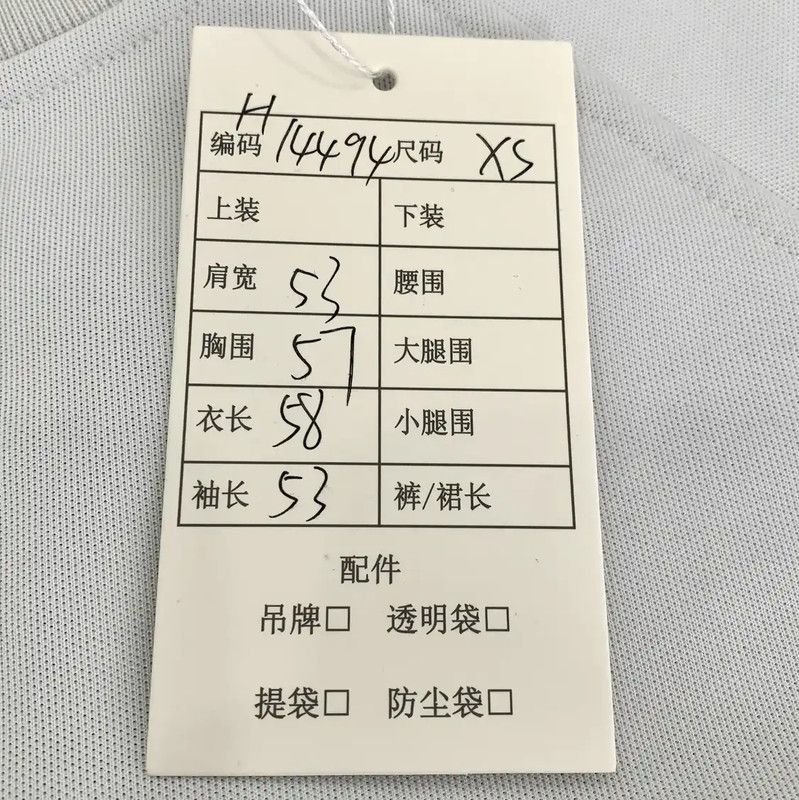 编码 H14494 尺码 XS
上装 下装
肩宽 53 腰围
胸围 57 大腿围
衣长 58 小腿围
袖长 53 裤/裙长
配件
吊牌□ 透明袋□
提袋□ 防尘袋□